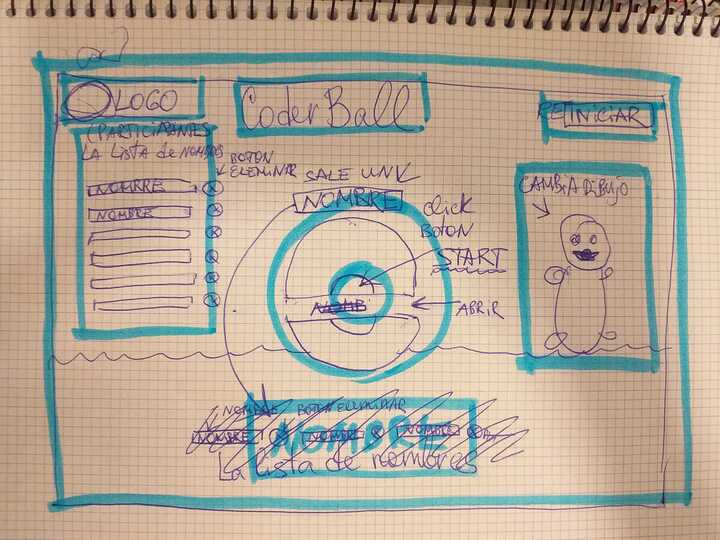 LOGO
CoderBall
REINICIAR
(PARTICIPANTES)
LA LISTA de NOMBRES
BOTON
ELEMINAR
NOMBRE
NOMBRE
SALE UN
NOMBRE
click
BOTON
START
ABRIR
NOMB
CAMBIA DIBUJO
NOMBRE
BOTON ELEMINAR
NOMBRE
NOMBRE
NOMBRE
NOMBRE
La lista de nombres